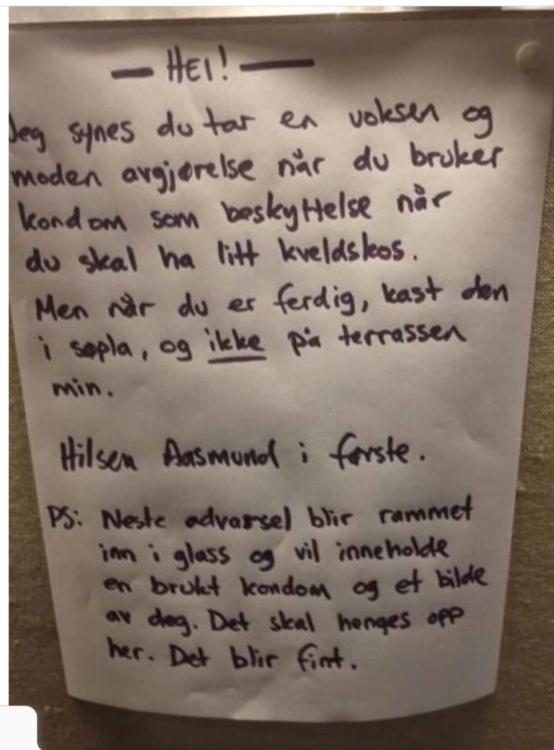 — HEI! —
Jeg synes du tar en voksen og
moden avgjørelse når du bruker
kondom som beskyttelse når
du skal ha litt kveldskos.
Men når du er ferdig, kast den
i søpla, og ikke på terrassen
min.
Hilsen Aasmund i første.
PS: Neste advarsel blir rammet
inn i glass og vil inneholde
en brukt kondom og et bilde
av deg. Det skal henges opp
her. Det blir fint.